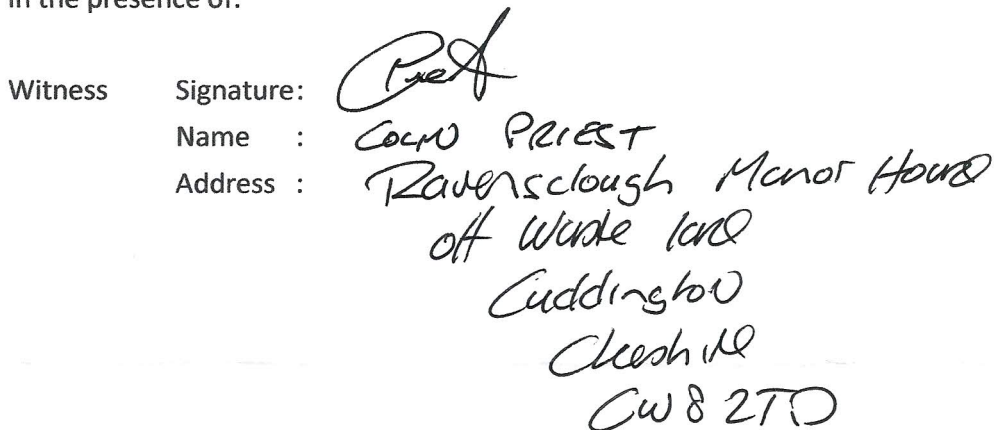 in the presence of:
Witness Signature: Priest
Name : COLIN PRIEST
Address : Ravensclough Manor House
off Waste lane
Cuddington
Cheshire
CW8 2TD